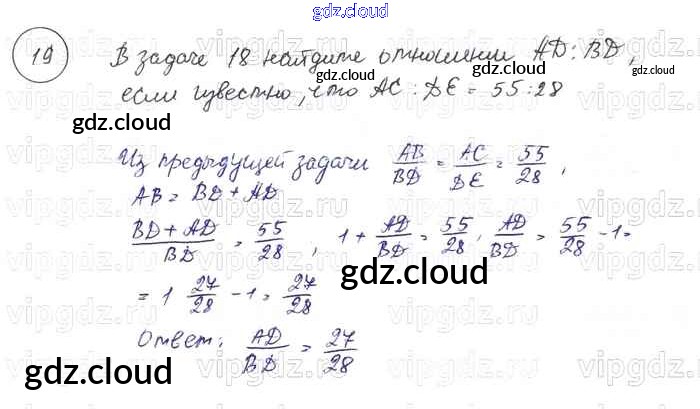 gdz.cloud
19 В задаче 18 найдите отношении AD : BD,
если известно, что AC : DE = 55 : 28
gdz.cloud
gdz.cloud
Из предыдущей задачи AB/BD = AC/DE = 55/28,
AB = BD + AD
(BD + AD)/BD = 55/28, 1 + AD/BD = 55/28, AD/BD = 55/28 - 1 =
gdz.cloud
= 1 27/28 - 1 = 27/28
Ответ: AD/BD = 27/28
gdz.cloud
gdz.cloud
vipgdz.ru